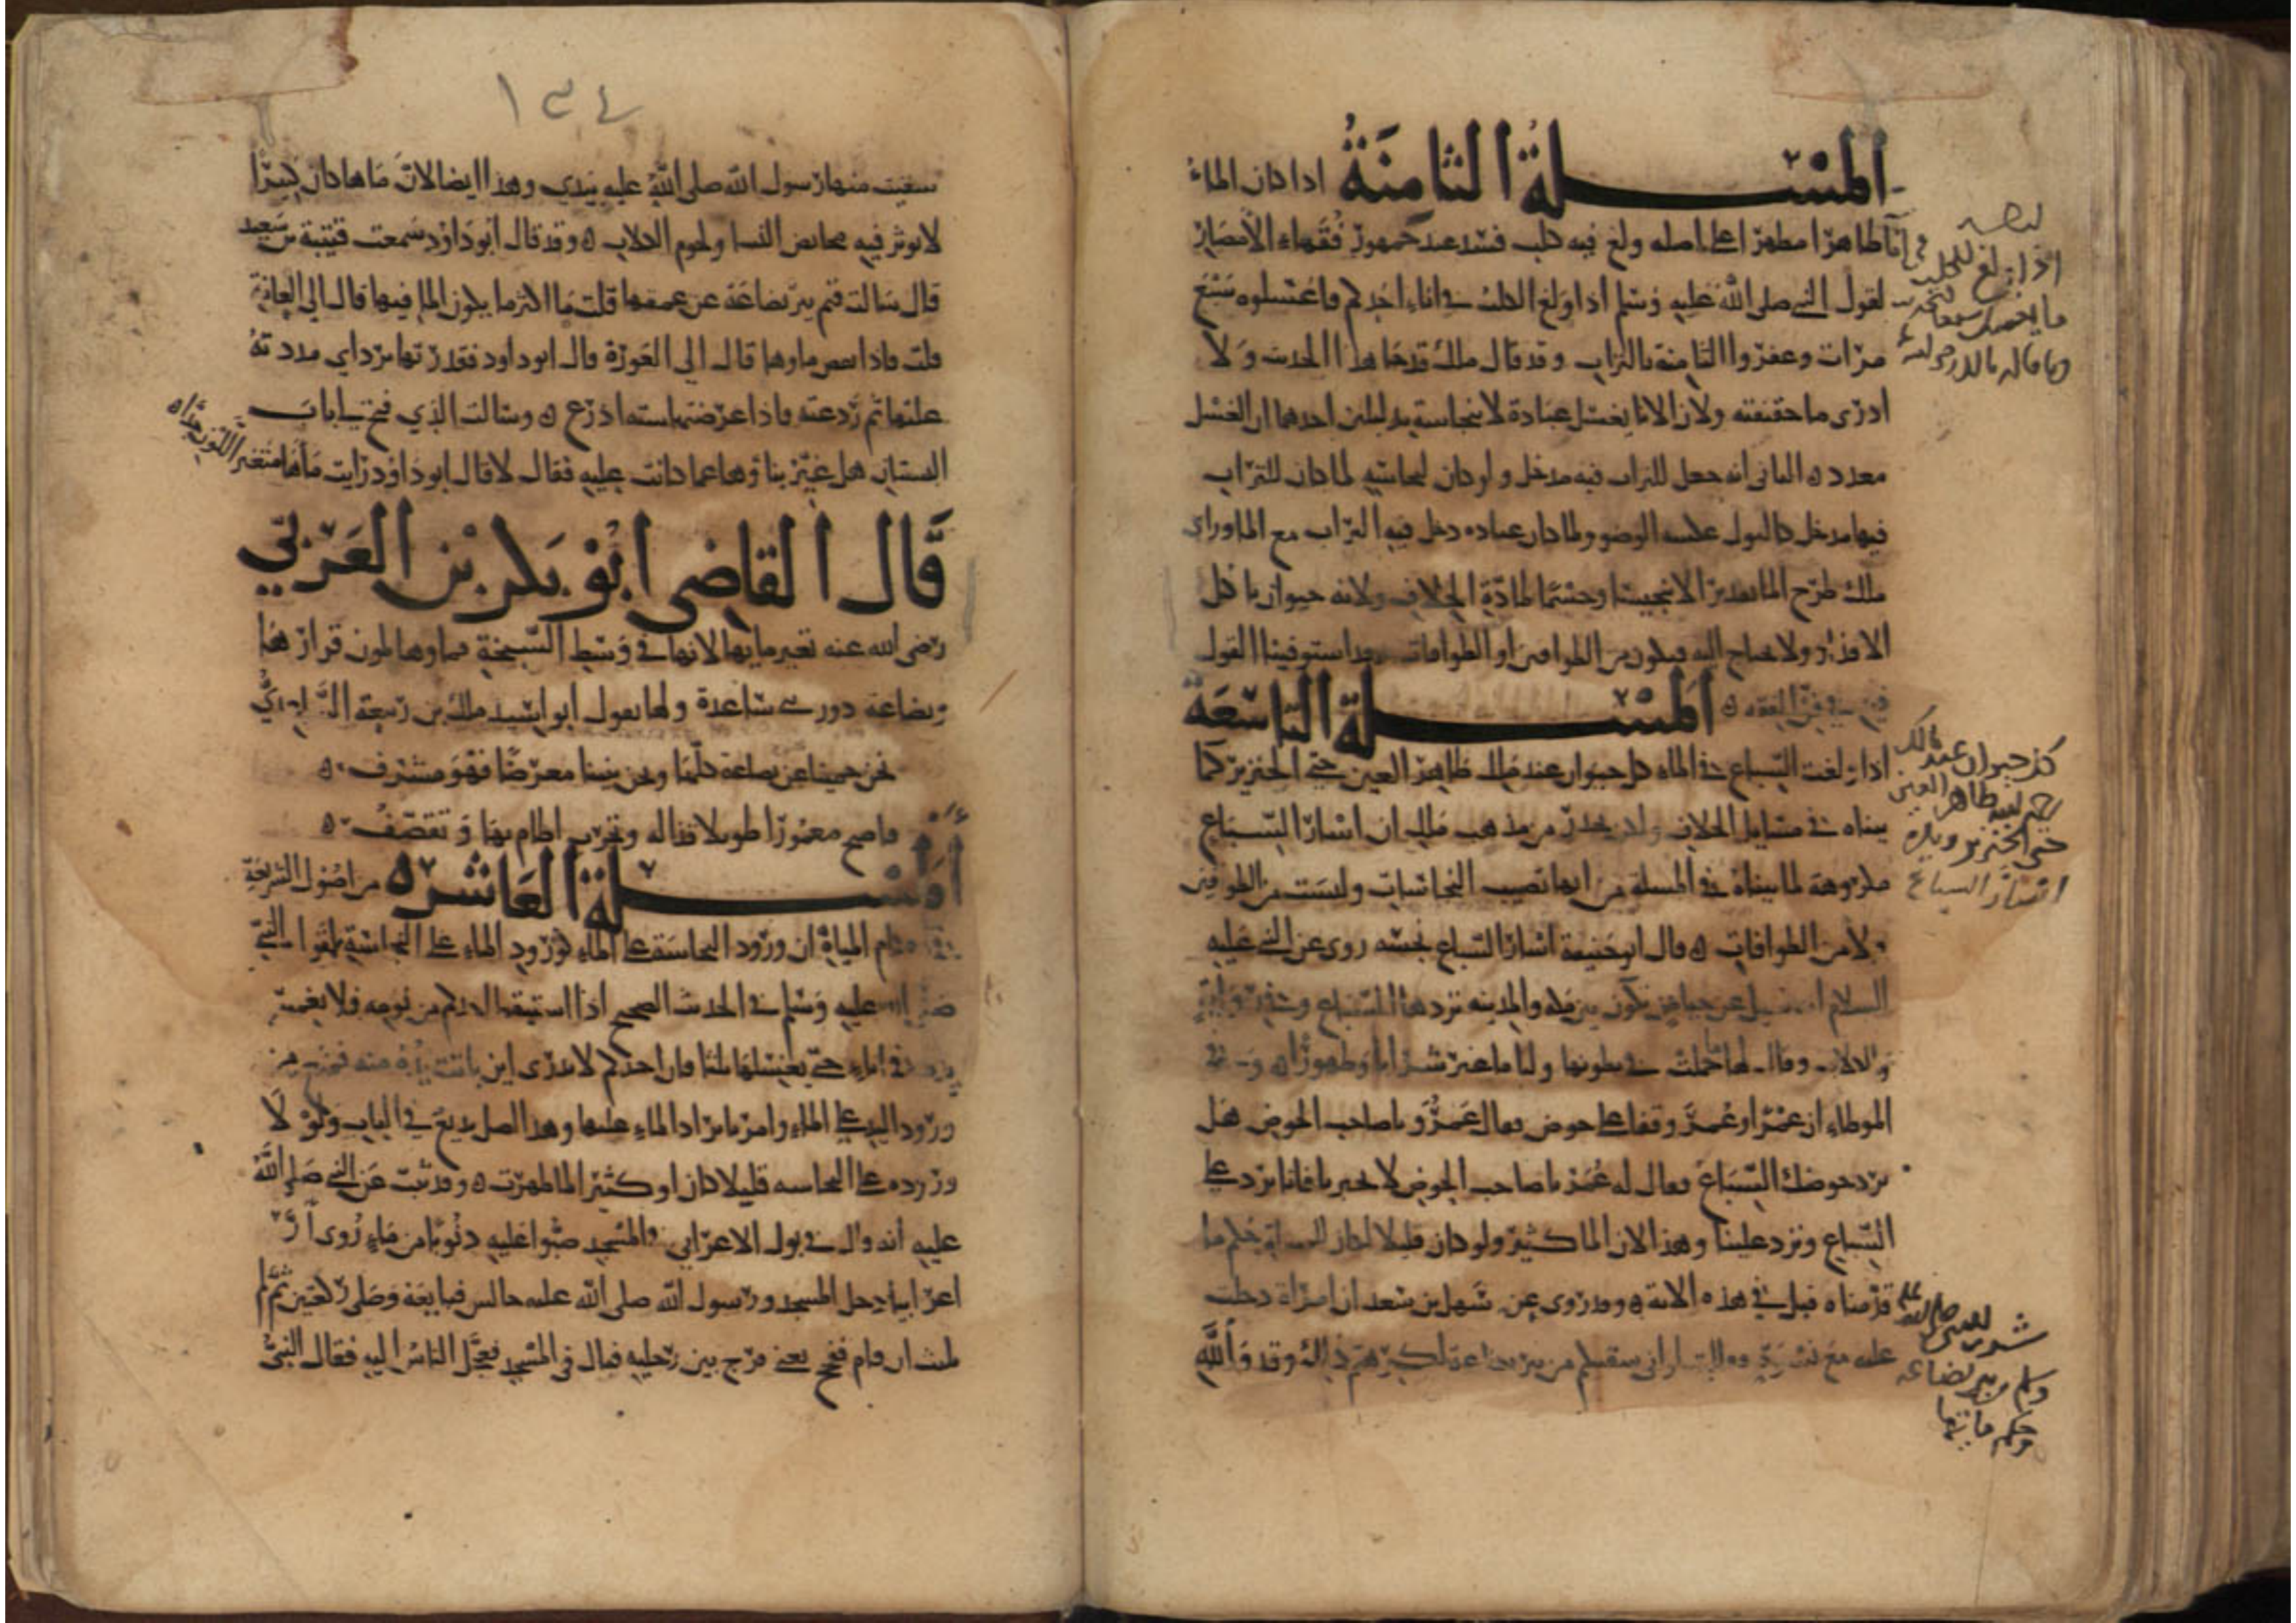 المسلة الثامنة اذا كان الماء
طاهرا مطهرا على اصله ولغ فيه كلب فسد عند جمهور فقهاء الامصار
لقول النبي صلى الله عليه وسلم اذا ولغ الكلب في اناء احدكم فاغسلوه سبع
مرات وعفروا الثامنة بالتراب وقد قال ملك قد جا هذا الحديث ولا
ادرى ما حقيقته ولان الانا يغسل عبادة لا لنجاسة بدليلين احدهما ان الغسل
معدد الثاني انه جعل للتراب فيه مدخل ولو كان لنجاسة لما كان للتراب
فيها مدخل كالبول عكسه الوضو ولما كان عباده دخل فيه التراب مع الما وراى
ملك طرح الما تقذرا لا تنجيسا وحسما لمادة الخلاف ولانه حيوان ياكل
الاقذار ولا يحتاج اليه فيكون من الطوافين او الطوافات وقد استوفينا القول
المسلة التاسعة
اذا ولغت السباع في الماء كل حيوان عند ملك طاهر العين حتى الخنزير كما
بيناه في مسايل الخلاف من مذهب ملك ان اسار السباع
مكروهة لما بيناه في المسلة من انها تصيب النجاسات وليست من الطوافين
ولا من الطوافات قال ابو حنيفة اسار السباع نجسه روى عن النبي عليه
السلام انه سيل عن حياض تكون بين مكه والمدينه تردها السباع
والكلاب وقال لها ما حملت في بطونها ولنا ما غبر شرابا وطهورا وفي
الموطاء ان عمر او عمرو وقفا على حوض فقال عمرو يا صاحب الحوض هل
ترد حوضك السباع فقال له عمر يا صاحب الحوض لا تخبرنا فانا نرد على
السباع وترد علينا وهذا لان الما كثير ولو كان قليلا لكان للمسلة حكم ما
قدمناه قبل في هذه الاية وقد روى عن سهل بن سعد ان امراة دخلت
عليه مع نسوة فقالت لو اني سقيتكم من بير بضاعة لكرهتم ذلك وقد والله
كل حيوان عند مالك
طاهر العين
حتى الخنزير ويكره
اسار السباع
١٣٤
سقيت منها رسول الله صلى الله عليه بيدي وهذا ايضا لان ماها كان كثيرا
لا يوثر فيه محايض النسا ولحوم الكلاب وقد قال ابو داود سمعت قتيبة بن سعيد
قال سالت قيم بير بضاعة عن عمقها قلت ما اكثر ما يكون الما فيها قال الى العانة
قلت فاذا نقص ماوها قال الى العورة قال ابو داود فقدرتها بردايي مددته
عليها ثم ذرعته فاذا عرضها سته اذرع وسالت الذي فتح لي باب
البستان هل غير بناوها عما كانت عليه فقال لا قال ابو داود رايت ماها متغير اللون جدا
قال القاضي ابو بكر بن العربي
رضى الله عنه تغير مايها لانها في وسط السبخة فماوها لمون قرارها
وبضاعة دور بني ساعدة ولها يقول ابو اسيد ملك بن ربيعة الساعدي
نحن حمينا عن بضاعة كلها ونحن بنينا معرضا فهو مشرف
فاصبح معمورا طويلا قذاله وتخرب اطام بها وتقصف
المسلة العاشره من اصول الشريعة
في احكام المياه ان ورود النجاسة على الماء كورود الماء على النجاسة لقول النبي
صلى الله عليه وسلم في الحديث الصحيح اذا استيقظ احدكم من نومه فلا يغمس
يده في اناء حتى يغسلها ثلثا فان احدكم لا يدرى اين باتت يده منه فمنع من
ورود اليد على الماء وامر بايراد الماء عليها وهذا اصل بديع في الباب ولولا
وروده على النجاسه قليلا كان او كثيرا لما طهرت وقد ثبت عن النبي صلى الله
عليه انه قال في بول الاعرابي في المسجد صبوا عليه ذنوبا من ماء روى ان
اعرابيا دخل المسجد ورسول الله صلى الله عليه جالس فبايعه وصلى ركعتين ثم لم
يلبث ان قام ففحج يعني فرج بين رجليه فبال في المسجد فعجل الناس اليه فقال النبي